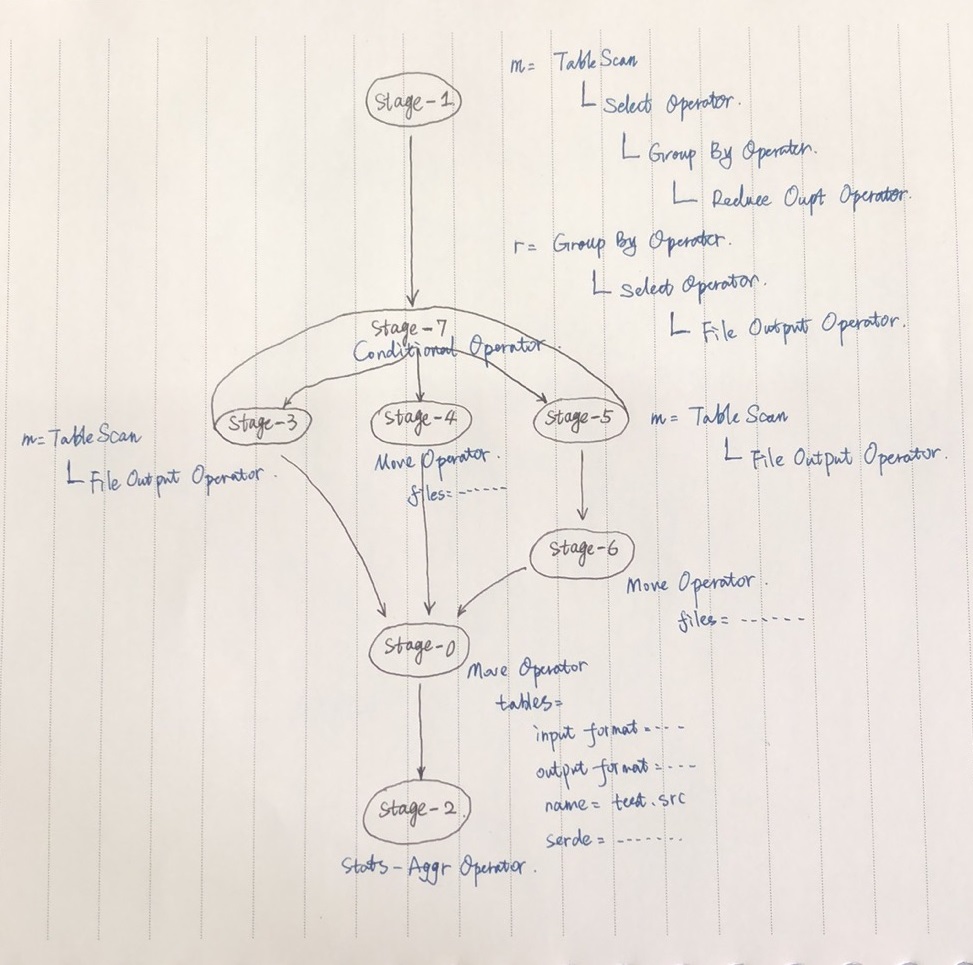 Stage-1
m= TableScan
Select Operator.
Group By Operator.
Reduce Oupt Operator.
r= Group By Operator.
Select Operator.
File Output Operator.
Stage-7
Conditional Operator.
Stage-3
m= TableScan
File Output Operator.
Stage-4
Move Operator.
files= ------
Stage-5
m= Table Scan
File Output Operator.
Stage-6
Move Operator.
files= ------
Stage-0
Move Operator
tables=
input format= ----
output format= ----
name= test.src
serde= -------
Stage-2
Stats-Aggr Operator.